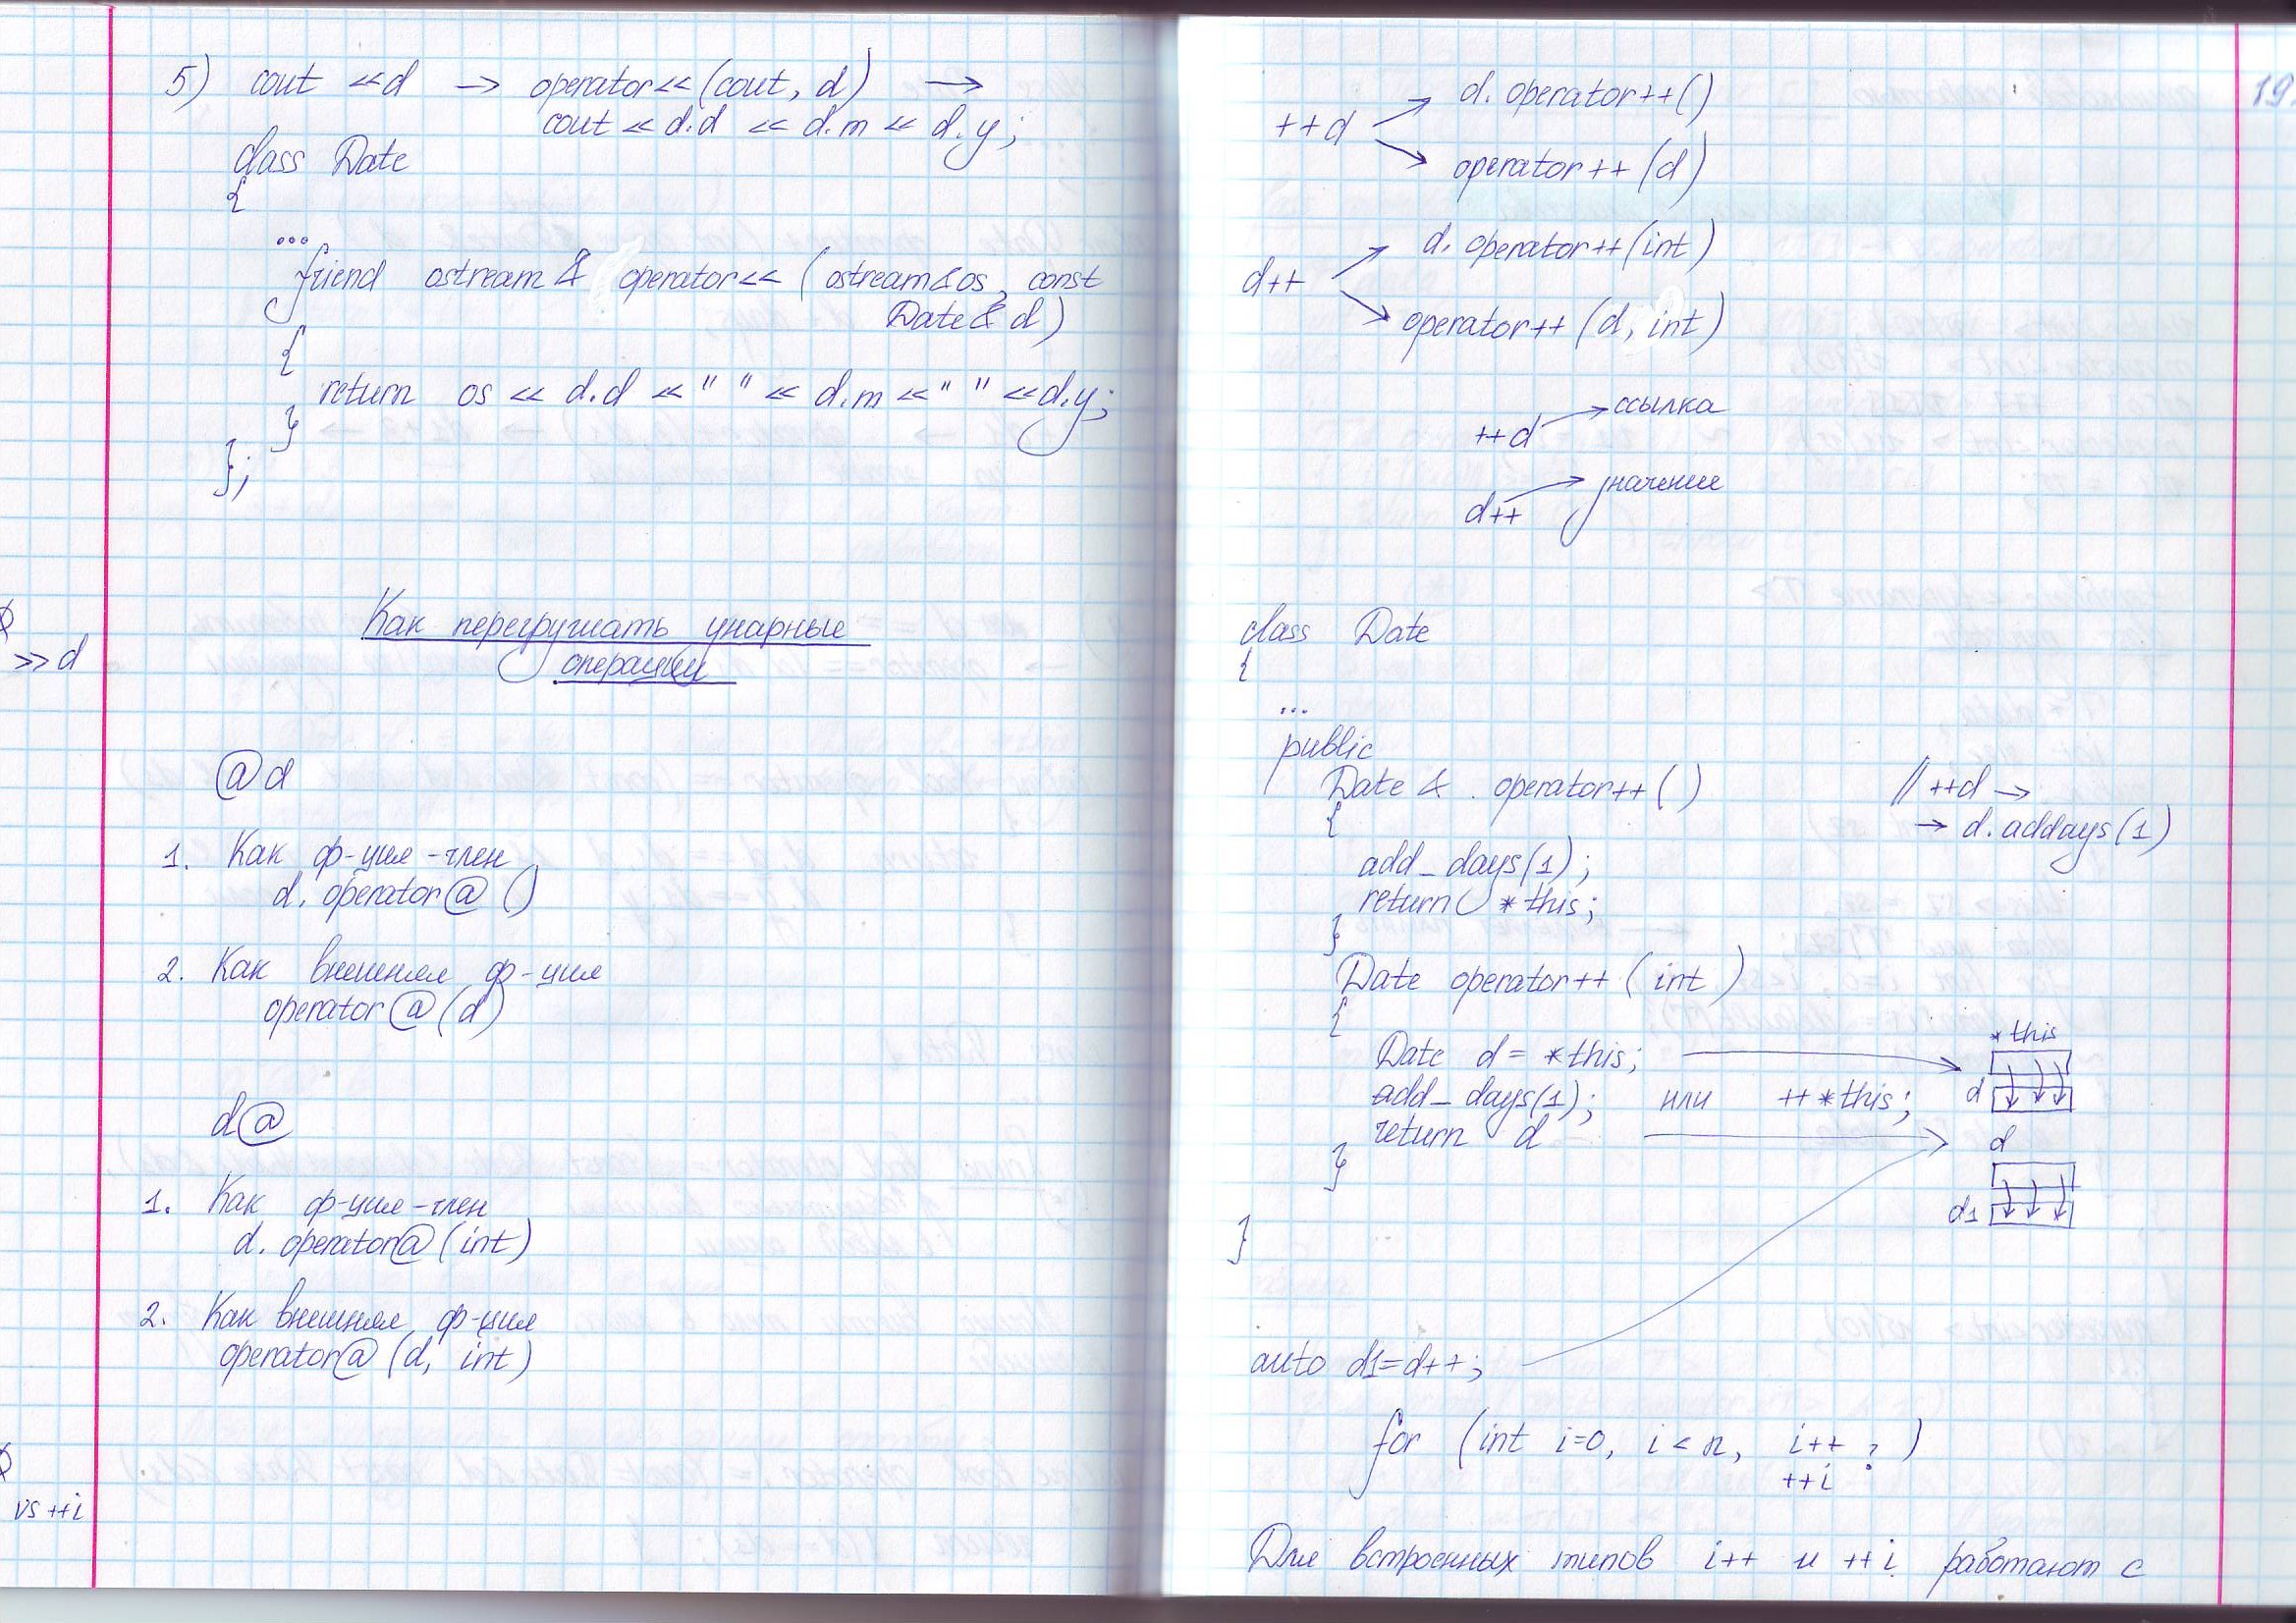 5) cout << d → operator<<(cout, d) →
cout << d.d << d.m << d.y;
class Date
{
...
friend ostream & operator<< (ostream&os, const
Date& d)
{
return os << d.d << " " << d.m << " " << d.y;
}
};
>> d
Как перегружать унарные
операции
@d
1. Как ф-ция-член
d. operator@ ()
2. Как внешняя ф-ция
operator@(d)
d@
1. Как ф-ция-член
d. operator@ (int)
2. Как внешняя ф-ция
operator@ (d, int)
vs ++i
19
++d
d. operator++()
operator++ (d)
d++
d. operator++(int)
operator++ (d, int)
++d → ссылка
d++ → значение
class Date
{
...
public
Date & operator++ () // ++d →
→ d.addays(1)
{
add_days(1);
return *this;
}
Date operator++ (int)
{
Date d = *this;
add_days(1); или ++*this;
return d
}
*this
d
d
d1
}
auto d1=d++;
for (int i=0, i<n, i++ ? )
++i
Для встроенных типов i++ и ++i работают с